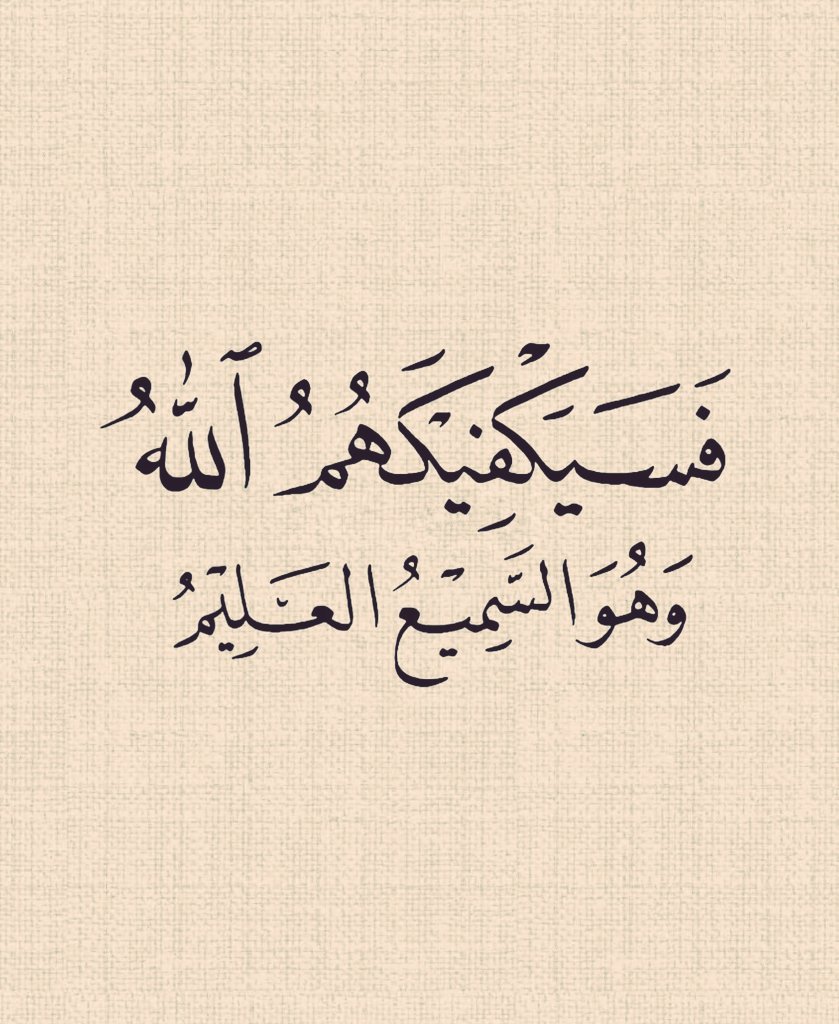 فَسَيَكْفِيْكَهُمُ ٱللّٰهُ
وَهُوَ السَّمِيْعُ الْعَلِيْمُ